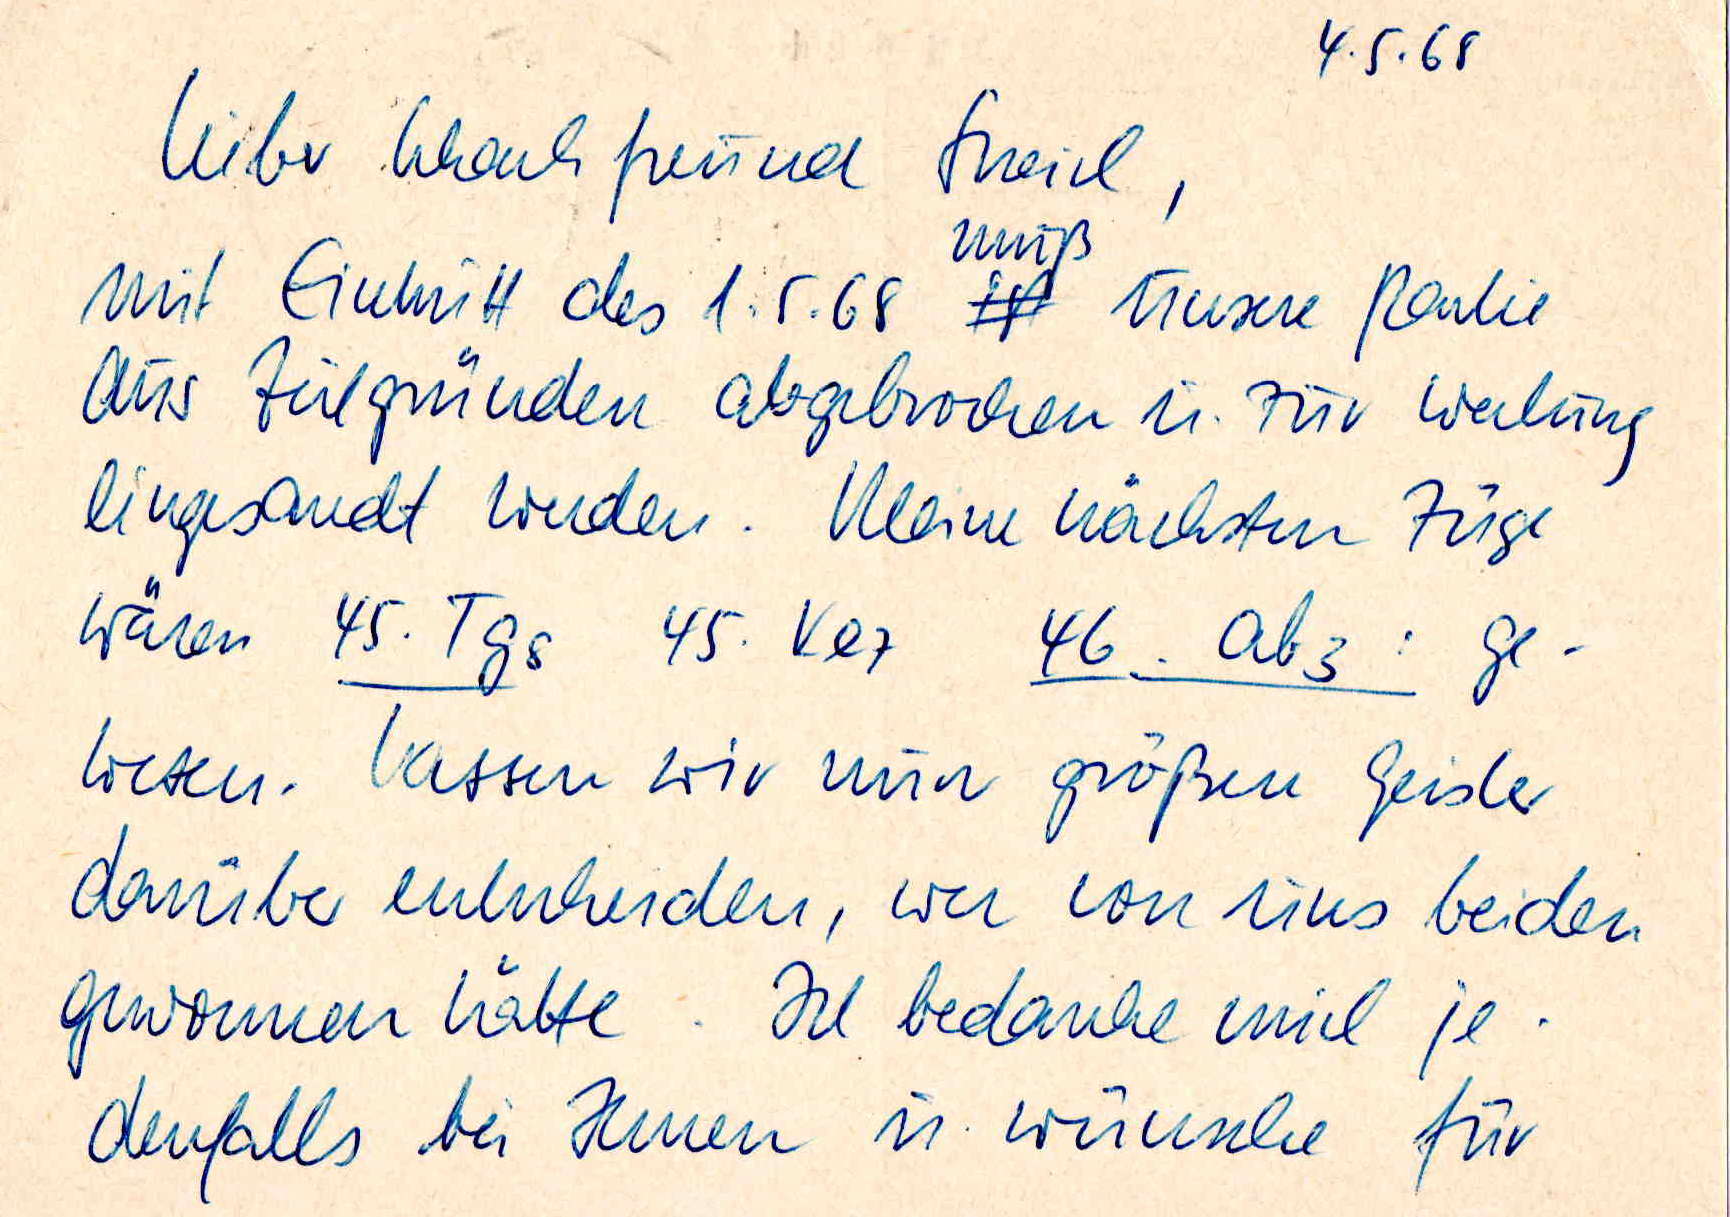 4.5.68
Lieber Schachfreund Streich,
muß
mit Eintritt des 1.5.68 ist unsere Partie
aus Zeitgründen abgebrochen u. zur Wertung
eingesandt werden. Meine nächsten Züge
wären 45. Tg8 45. Ke7 46. ab3: ge-
wesen. Lassen wir nun größen Geister
darüber entscheiden, wer von uns beiden
gewonnen hätte. Ich bedanke mich je-
denfalls bei Ihnen u. wünsche für